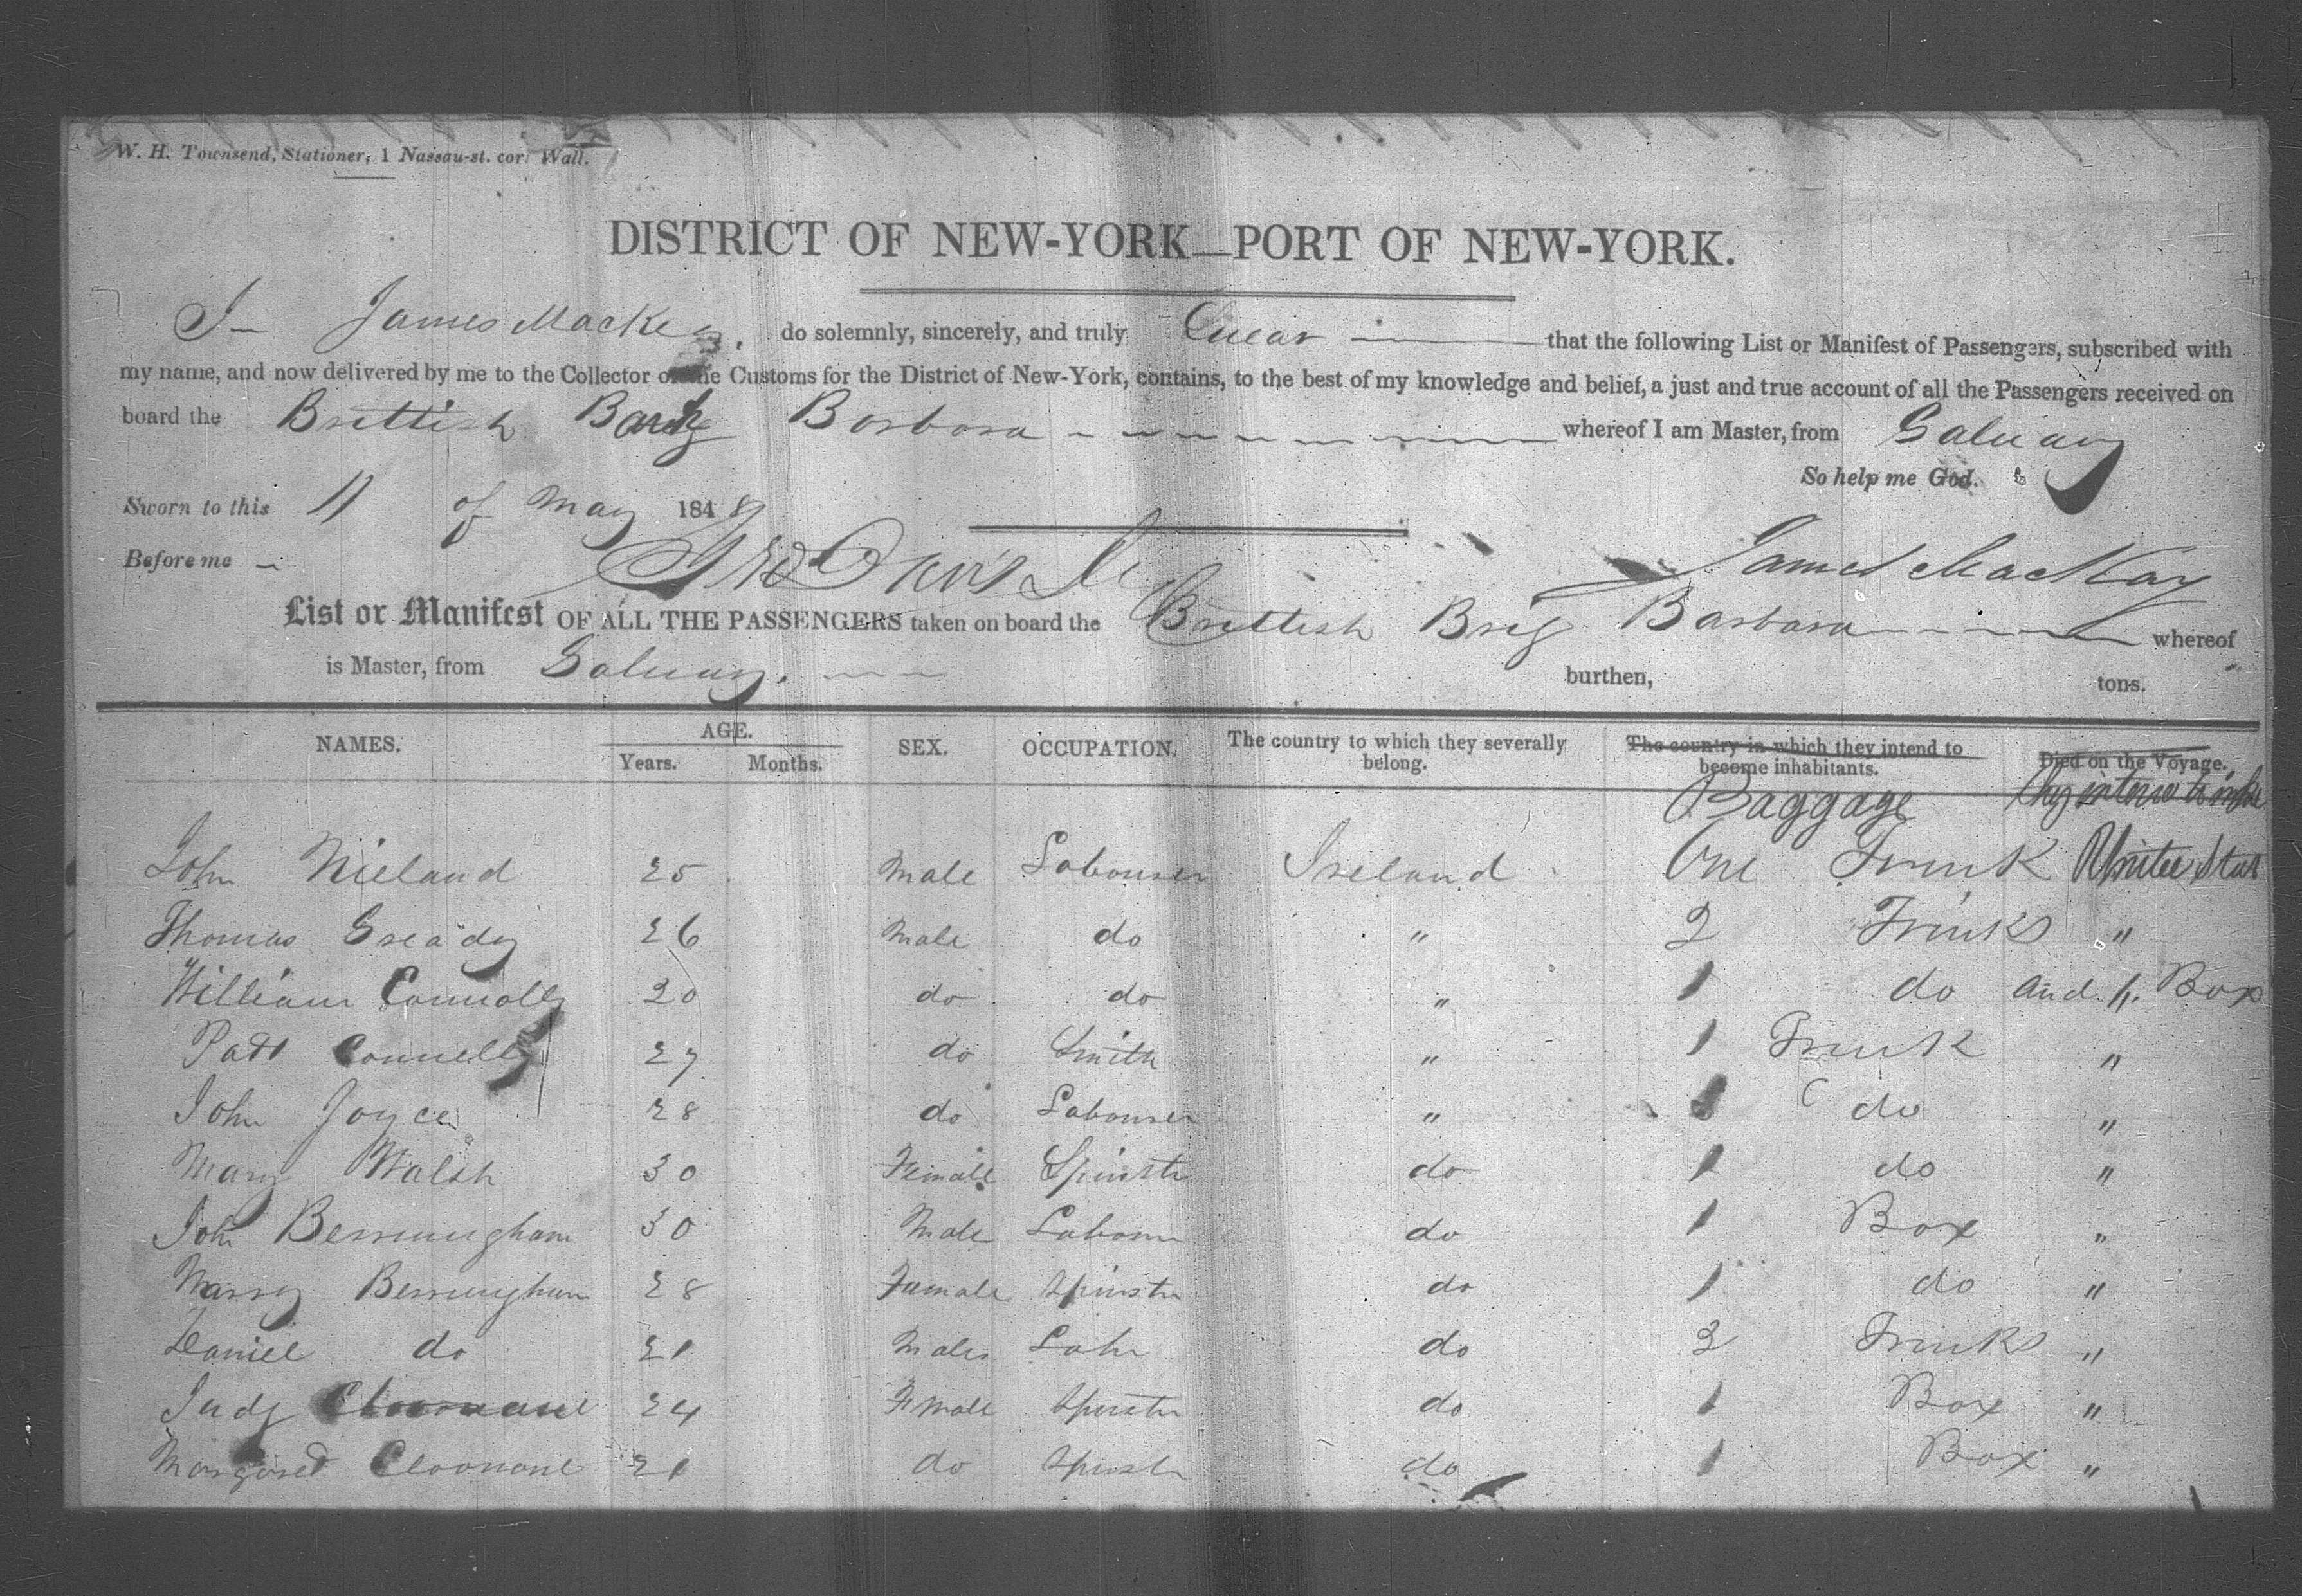 W. H. Townsend, Stationer, 1 Nassau-st. cor. Wall.
DISTRICT OF NEW-YORK—PORT OF NEW-YORK.
I James Mackey, do solemnly, sincerely, and truly Swear that the following List or Manifest of Passengers, subscribed with
my name, and now delivered by me to the Collector of the Customs for the District of New-York, contains, to the best of my knowledge and belief, a just and true account of all the Passengers received on
board the Brittish Barbara whereof I am Master, from Galway
So help me God.
Sworn to this 11 of May 1848
Before me James MacKay
List or Manifest OF ALL THE PASSENGERS taken on board the Brittish Brig Barbara whereof
is Master, from Galway. burthen, tons.
NAMES. AGE. SEX. OCCUPATION. The country to which they severally belong. The country in which they intend to become inhabitants. Died on the Voyage.
Years. Months.
Baggage
John Nieland 25 Male Labourer Ireland One Trunk Unitee Stat
Thomas Gready 26 Male do " 2 Trunks "
William Connolly 20 do do " 1 do and 1 Box
Patt Connelly 27 do Smith " 1 Trunk "
John Joyce 28 do Labourer " do "
Mary Walsh 30 Female Spinstr do 1 do "
John Bermingham 30 Male Labour do 1 Box "
Marry Bermingham 28 Female Spinstr do 1 do "
Daniel do 21 Male Labr do 2 Trunks "
Judy 24 Female Spinstr do 1 Box "
Margaret Cloonane 21 do Spinstr do 1 Box "